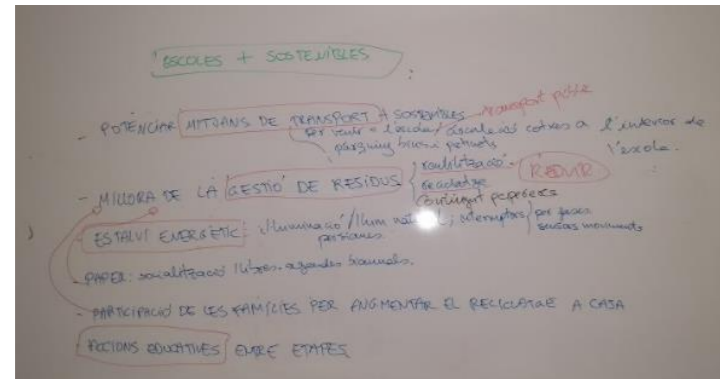 ESCOLES + SOSTENIBLES
- POTENCIAR MITJANS DE TRANSPORT + SOSTENIBLES transport públic
per venir a l'escola / cotxes a l'interior de l'escola.
pàrquing bicis i patinets
- MILLORA DE LA GESTIÓ DE RESIDUS reutilització REDUIR
reciclatge
contingut papereres
- ESTALVI ENERGÈTIC: il·luminació / llum natural; interruptors per fases
persianes. sensors moviments
- PAPER: socialització llibres. agendes biannuals.
- PARTICIPACIÓ DE LES FAMÍLIES PER AUGMENTAR EL RECICLATGE A CASA
- ACCIONS EDUCATIVES ENTRE ETAPES